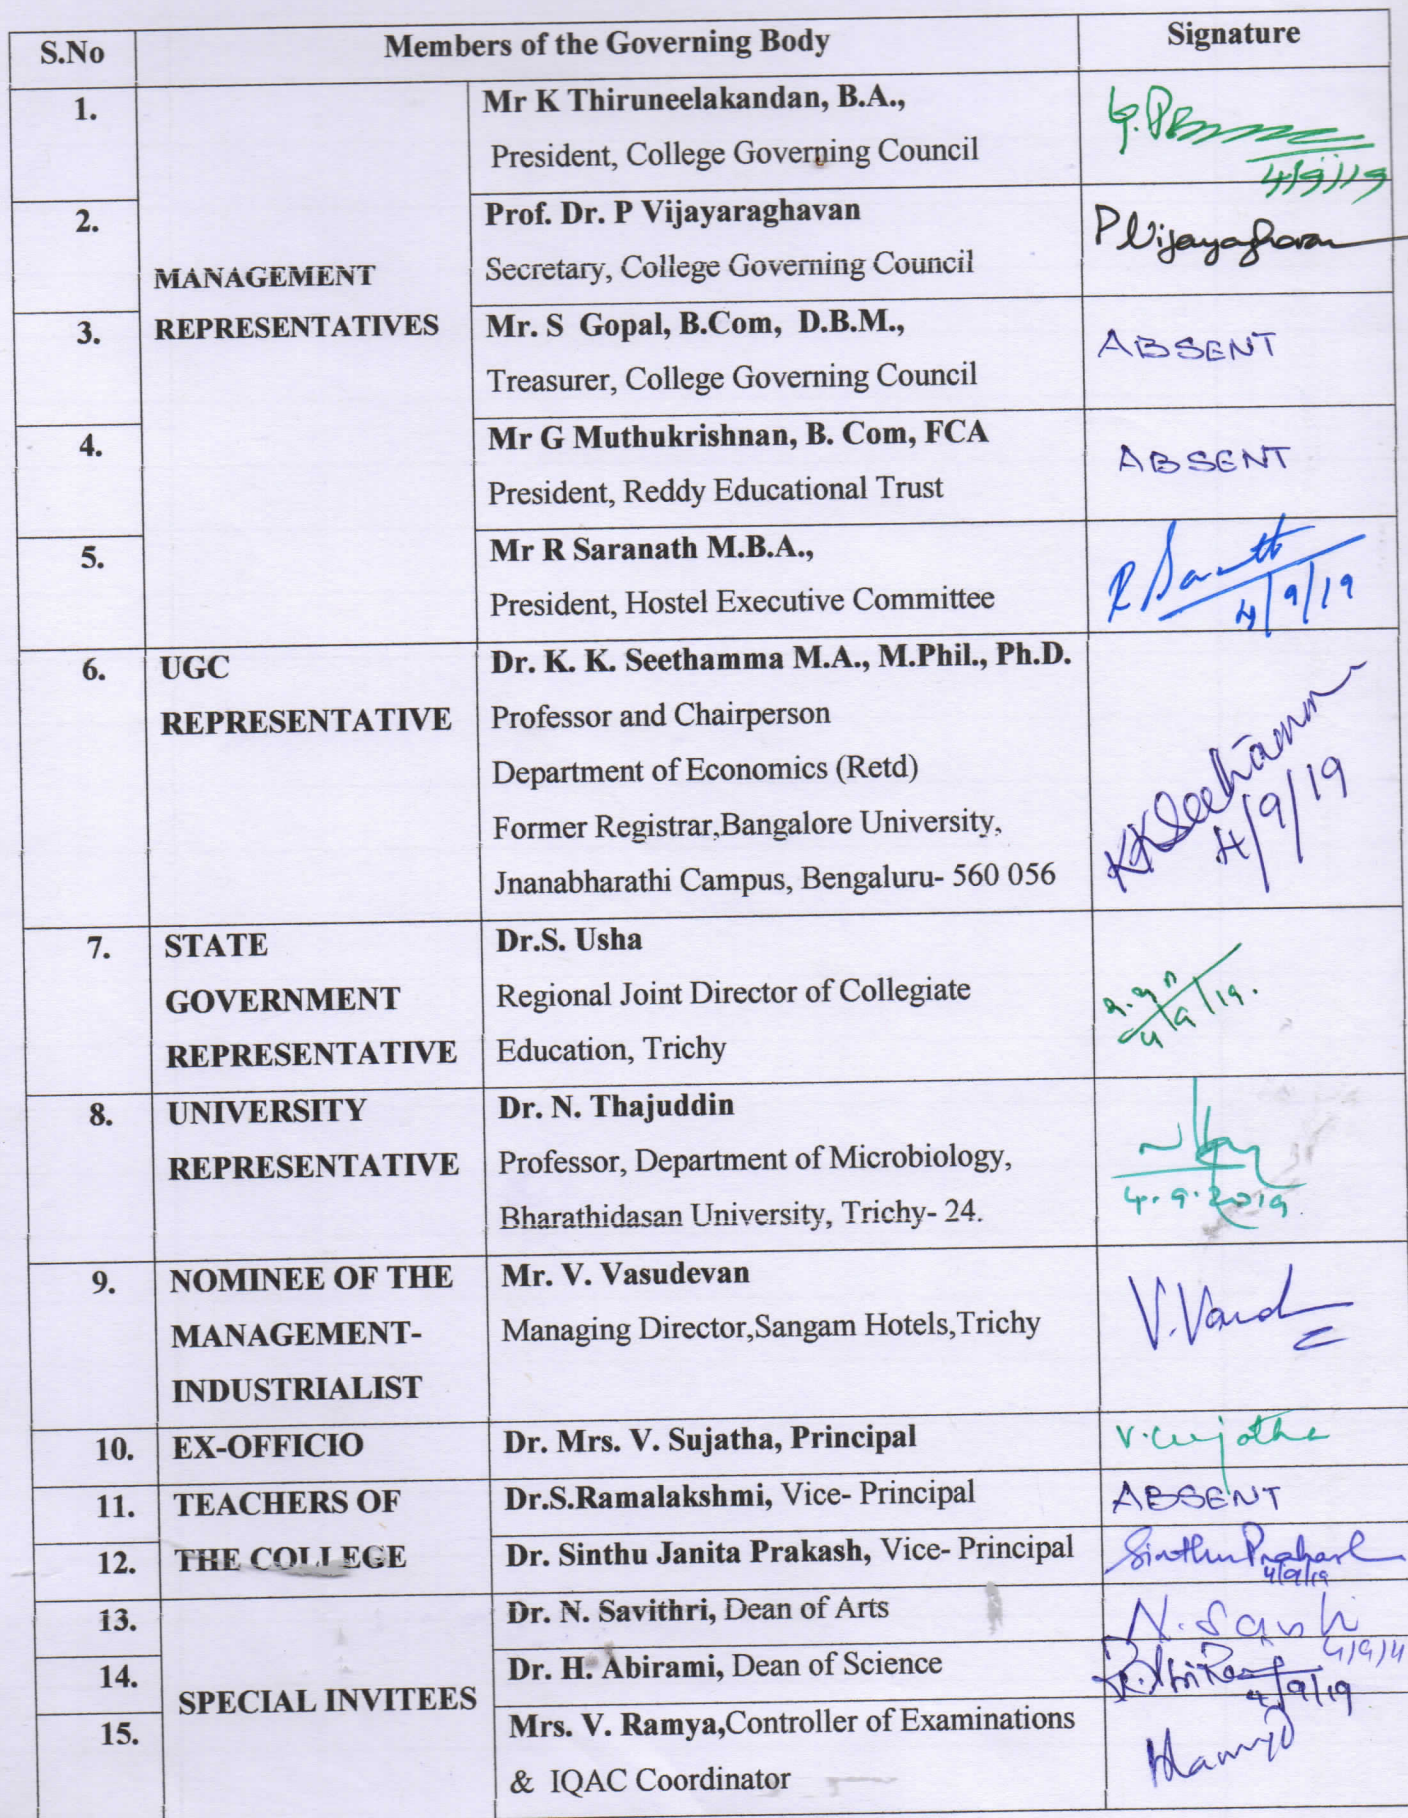 S.No Members of the Governing Body Signature
1. Mr K Thiruneelakandan, B.A.,
President, College Governing Council
4/9/19
2. Prof. Dr. P Vijayaraghavan
Secretary, College Governing Council
P Vijayaghavan
MANAGEMENT
REPRESENTATIVES
3. Mr. S Gopal, B.Com, D.B.M.,
Treasurer, College Governing Council
ABSENT
4. Mr G Muthukrishnan, B. Com, FCA
President, Reddy Educational Trust
ABSENT
5. Mr R Saranath M.B.A.,
President, Hostel Executive Committee
4/9/19
6. UGC
REPRESENTATIVE
Dr. K. K. Seethamma M.A., M.Phil., Ph.D.
Professor and Chairperson
Department of Economics (Retd)
Former Registrar,Bangalore University,
Jnanabharathi Campus, Bengaluru- 560 056
KKSeethamma
4/9/19
7. STATE
GOVERNMENT
REPRESENTATIVE
Dr.S. Usha
Regional Joint Director of Collegiate
Education, Trichy
4/9/19.
8. UNIVERSITY
REPRESENTATIVE
Dr. N. Thajuddin
Professor, Department of Microbiology,
Bharathidasan University, Trichy- 24.
4.9.2019
9. NOMINEE OF THE
MANAGEMENT-
INDUSTRIALIST
Mr. V. Vasudevan
Managing Director,Sangam Hotels,Trichy
10. EX-OFFICIO Dr. Mrs. V. Sujatha, Principal V. Sujatha
11. TEACHERS OF Dr.S.Ramalakshmi, Vice- Principal ABSENT
12. THE COLLEGE Dr. Sinthu Janita Prakash, Vice- Principal Sinthu Prakash
4/9/19
13. Dr. N. Savithri, Dean of Arts
14. Dr. H. Abirami, Dean of Science
4/9/19
SPECIAL INVITEES
15. Mrs. V. Ramya,Controller of Examinations
& IQAC Coordinator